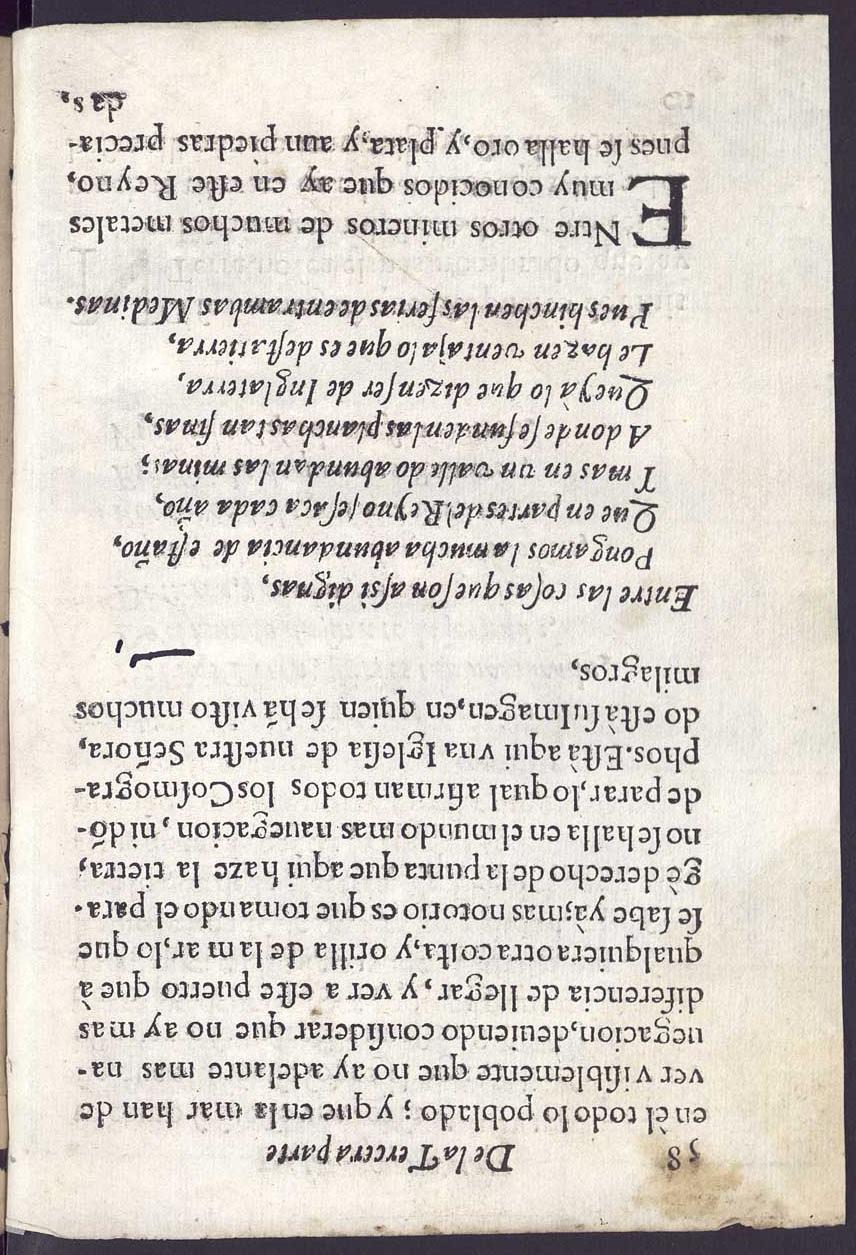 58 De la Tercera parte
en èl todo lo poblado ; y que en la mar han de
ver visiblemente que no ay adelante mas na-
uegacion, deuiendo considerar que no ay mas
diferencia de llegar, y ver a este puerto que à
qualquiera otra costa, y orilla de la mar, lo que
se sabe yà; mas notorio es que tomando el para-
gè derecho de la punta que aqui haze la tierra,
no se halla en el mundo mas nauegacion, ni dō-
de parar, lo qual afirman todos los Cosmogra-
phos. Està aqui vna Iglesia de nuestra Señora,
do està su Imagen, en quien se há visto muchos
milagros,
Entre las cosas que son assi dignas,
Pongamos la mucha abundancia de estaño,
Que en partes del Reyno se saca cada año,
Y mas en un valle do abundan las minas;
A donde se funden las planchas tan finas,
Que yà lo que dizen ser de Inglaterra,
Le hazen ventaja lo que es desta tierra,
Pues hinchen las ferias de entrambas Medinas.
ENtre otros mineros de muchos metales
muy conocidos que ay en este Reyno,
pues se halla oro, y plata, y aun piedras precia-
das,